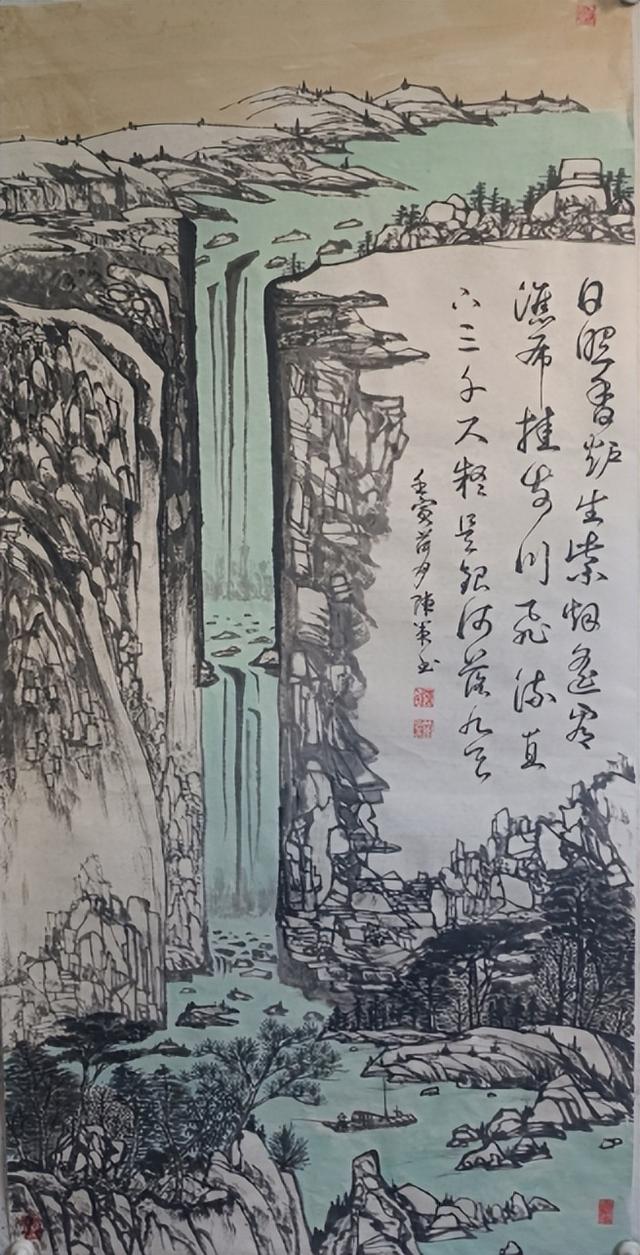 日照香炉生紫烟遥看
瀑布挂前川飞流直
下三千尺疑是银河落九天
壬寅荷月陈书